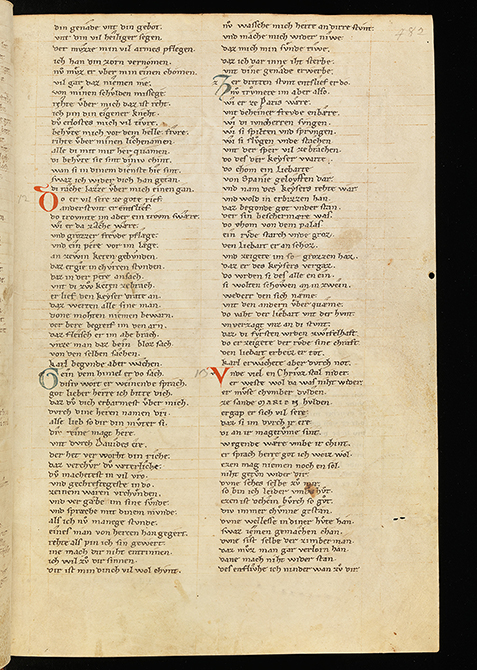 din genade vnt din gebot.
vnt din vil heiliger segen.
der mvzze min vil armes pflegen.
ich han din zorn vernomen.
nv mvz er vber min einen chomen.
vil gar daz niemen me.
von minen schvlden missege.
rihte vber mich daz ist reht.
ich pin din eigener kneht.
dv erlostes mich vil tivre.
behvte mich vor dem helle fivre.
rihte vber minen lichenamen.
alle di mit mir her quamen.
di behvte si sint din chint.
wan si in dinem dienste hie sint.
swaz ich wider dich han getan.
di rache lazze vber mich einen gan.
Do er vil sere ze gote rief.
anderstunt er entslief.
do trovmte im aber ein trovm swære.
wi er da ze Ache wære.
vnd grozzer frevde pflæge.
vnd ein pere vor im læge.
an zwein keten gebvnden.
daz ergie in churzen stunden.
daz in der pere ansach.
vnt di zwo keten zebrach.
er lief den keyser vaste an.
daz werten alle sine man.
done mohten niemen bewarn.
der bere begreif im den arn.
daz fleisch er im abe brach.
vnze man daz bein bloz sach.
von den selben sachen.
karl begunde aber wachen.
Gein dem himel er do sach.
disiv wort er weinende sprach.
got lieber herre ich bitte dich.
daz dv dich erbarmest vber mich.
durch dine heren namen dri.
alle lieb so dir din mvter si.
div reine maget here.
vnt durch Davides ere.
der het ver worht din riche.
daz verchur dv veterliche.
dv machetest in vil vro.
vnd gechreftigeste in do.
zeinem waren vrchunden.
vnd wer gæbe im sine sunde.
vnd spræche mit dinem munde.
als ich nv manege stunde.
eines man von herzen han gegert.
rihte als pin ich sin gewert.
ine mach dir niht entrinnen.
ich wil zv dir sinnen.
dir ist min dinch vil wol chunt.
nv wassche mich herre an dirre stunt.
vnd mache mich wider niwe.
daz mich min sunde riwe.
daz ich dar inne iht sterbe.
vnt dine genade erwerbe.
Zer dritten stunt entslief er do.
nv trovmete im aber also.
wi er ze Paris wære.
vnt deheiner frevde enbære.
wi di ivncherren svngen.
wi si spilten vnd sprvngen.
wi si slvgen vnde stachen
vnt der sper vil zebrachen.
do des der keyser warte.
do chom ein liebarte
von Spanie gelovffen dar.
vnd nam des keysers rehte war
vnd wold in erbizzen han.
daz begonde got vnder stan.
der sin beschermere was.
do chom von dem palas
ein rvde starch vnde groz.
den liebart er an schoz.
vnd zeigete im so grozzen haz.
daz er des keysers vergaz.
do wrden si des alle en ein.
si wolten schowen an in zwein.
weder den sich næme
vnt den andern vber quæme.
do vaht der liebart vnt der hunt.
vnverzagt vnz an di stunt.
daz di fursten wrden zwifelhaft.
do er zeigete der rvde sine chraft.
den liebart erbeiz er tot.
karl erwachete aber durch not.
Vnde viel en Chrivz stal nider.
er weste wol da was niht wider.
er mvse chumber dvlden.
ze sande MARIEN hvlden.
ergap er sich vil sere.
daz si im durch ir ere.
di an ir magetvme sint.
wegende wære vmbe ir chint.
er sprach herre got ich weiz wol.
ezen mag niemen noch en sol.
niht getvn wider dir.
dvne schef selbe zv mir.
so bin ich leider
ezen ist dehein burch so gvt.
div immer chunne gestan.
dvne wellest in diner hvte han.
swaz iemen gemachen chan.
dvne sist selbe der zimber man.
daz mvz man gar verlorn han.
dane mach niht wider stan.
des enflivhe ich ninder wan zv dir